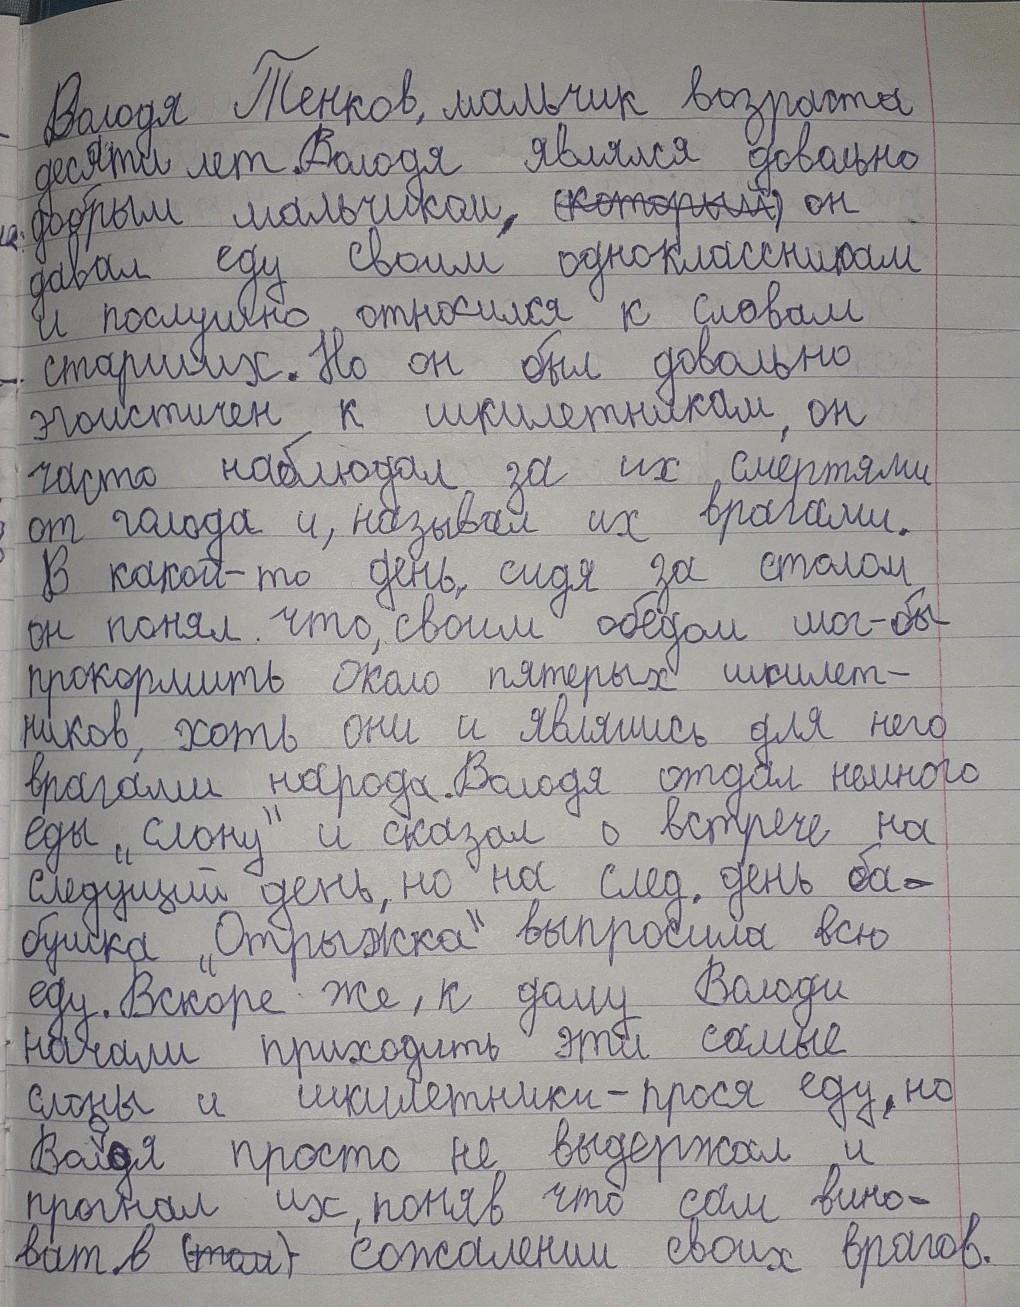 Володя Тенков, мальчик возраста
десяти лет. Володя являлся довально
добрым мальчиком, (который) он
давал еду своим одноклассникам
и послушно относился к словам
старших. Но он был довально
эгоистичен к шкилетникам, он
часто наблюдал за их смертями
от голода и, называл их врагами.
В какой-то день, сидя за столом
он понял что, своим обедом мог-бы
прокормить около пятерых шкилет-
ников, хоть они и являлись для него
врагами народа. Володя отдал немного
еды „слону" и сказал о встрече на
следущий день, но на след. день ба-
бушка „Отрыжка" выпросила всю
еду. Вскоре же, к дому Володи
начали приходить эти самые
слоны и шкилетники - прося еду, но
Володя просто не выдержал и
прогнал их, поняв что сам вино-
ват в (том) сожалении своих врагов.